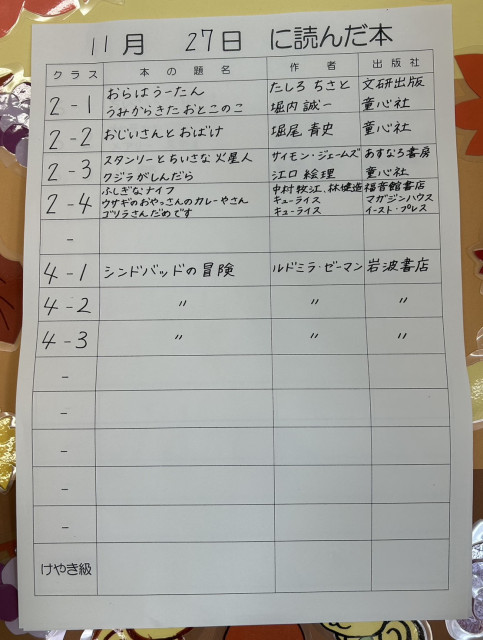 11月 27日 に読んだ本
クラス 本の題名 作者 出版社
2-1 おらはうーたん たしろ ちさと 文研出版
うみからきた おとこのこ 堀内 誠一 童心社
2-2 おじいさんと おばけ 堀尾 青史 童心社
2-3 スタンリーとちいさな火星人 サイモン・ジェームズ あすなろ書房
クジラがしんだら 江口 絵理 童心社
2-4 ふしぎなナイフ 中村牧江、林健造 福音館書店
ウサギのおやっさんのカレーやさん キューライス マガジンハウス
ゴリラさんだめです キューライス イースト・プレス
-
4-1 シンドバッドの冒険 ルドミラ・ゼーマン 岩波書店
4-2 〃 〃 〃
4-3 〃 〃 〃
-
-
-
-
-
けやき級